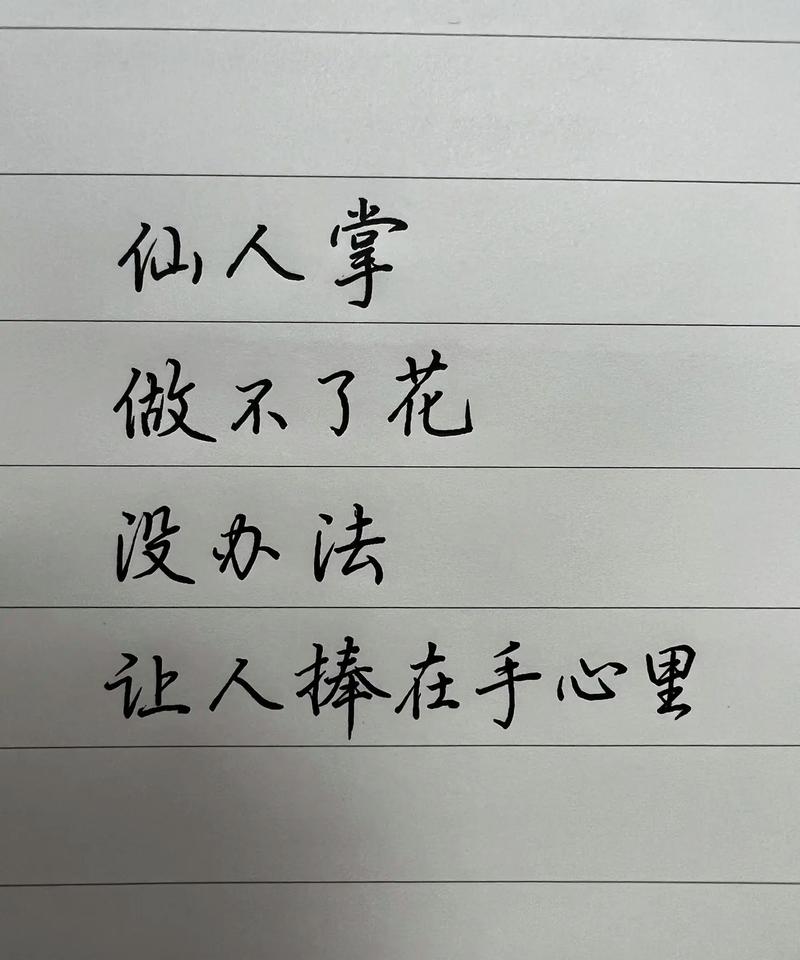 仙人掌
做不了花
没办法
让人捧在手心里